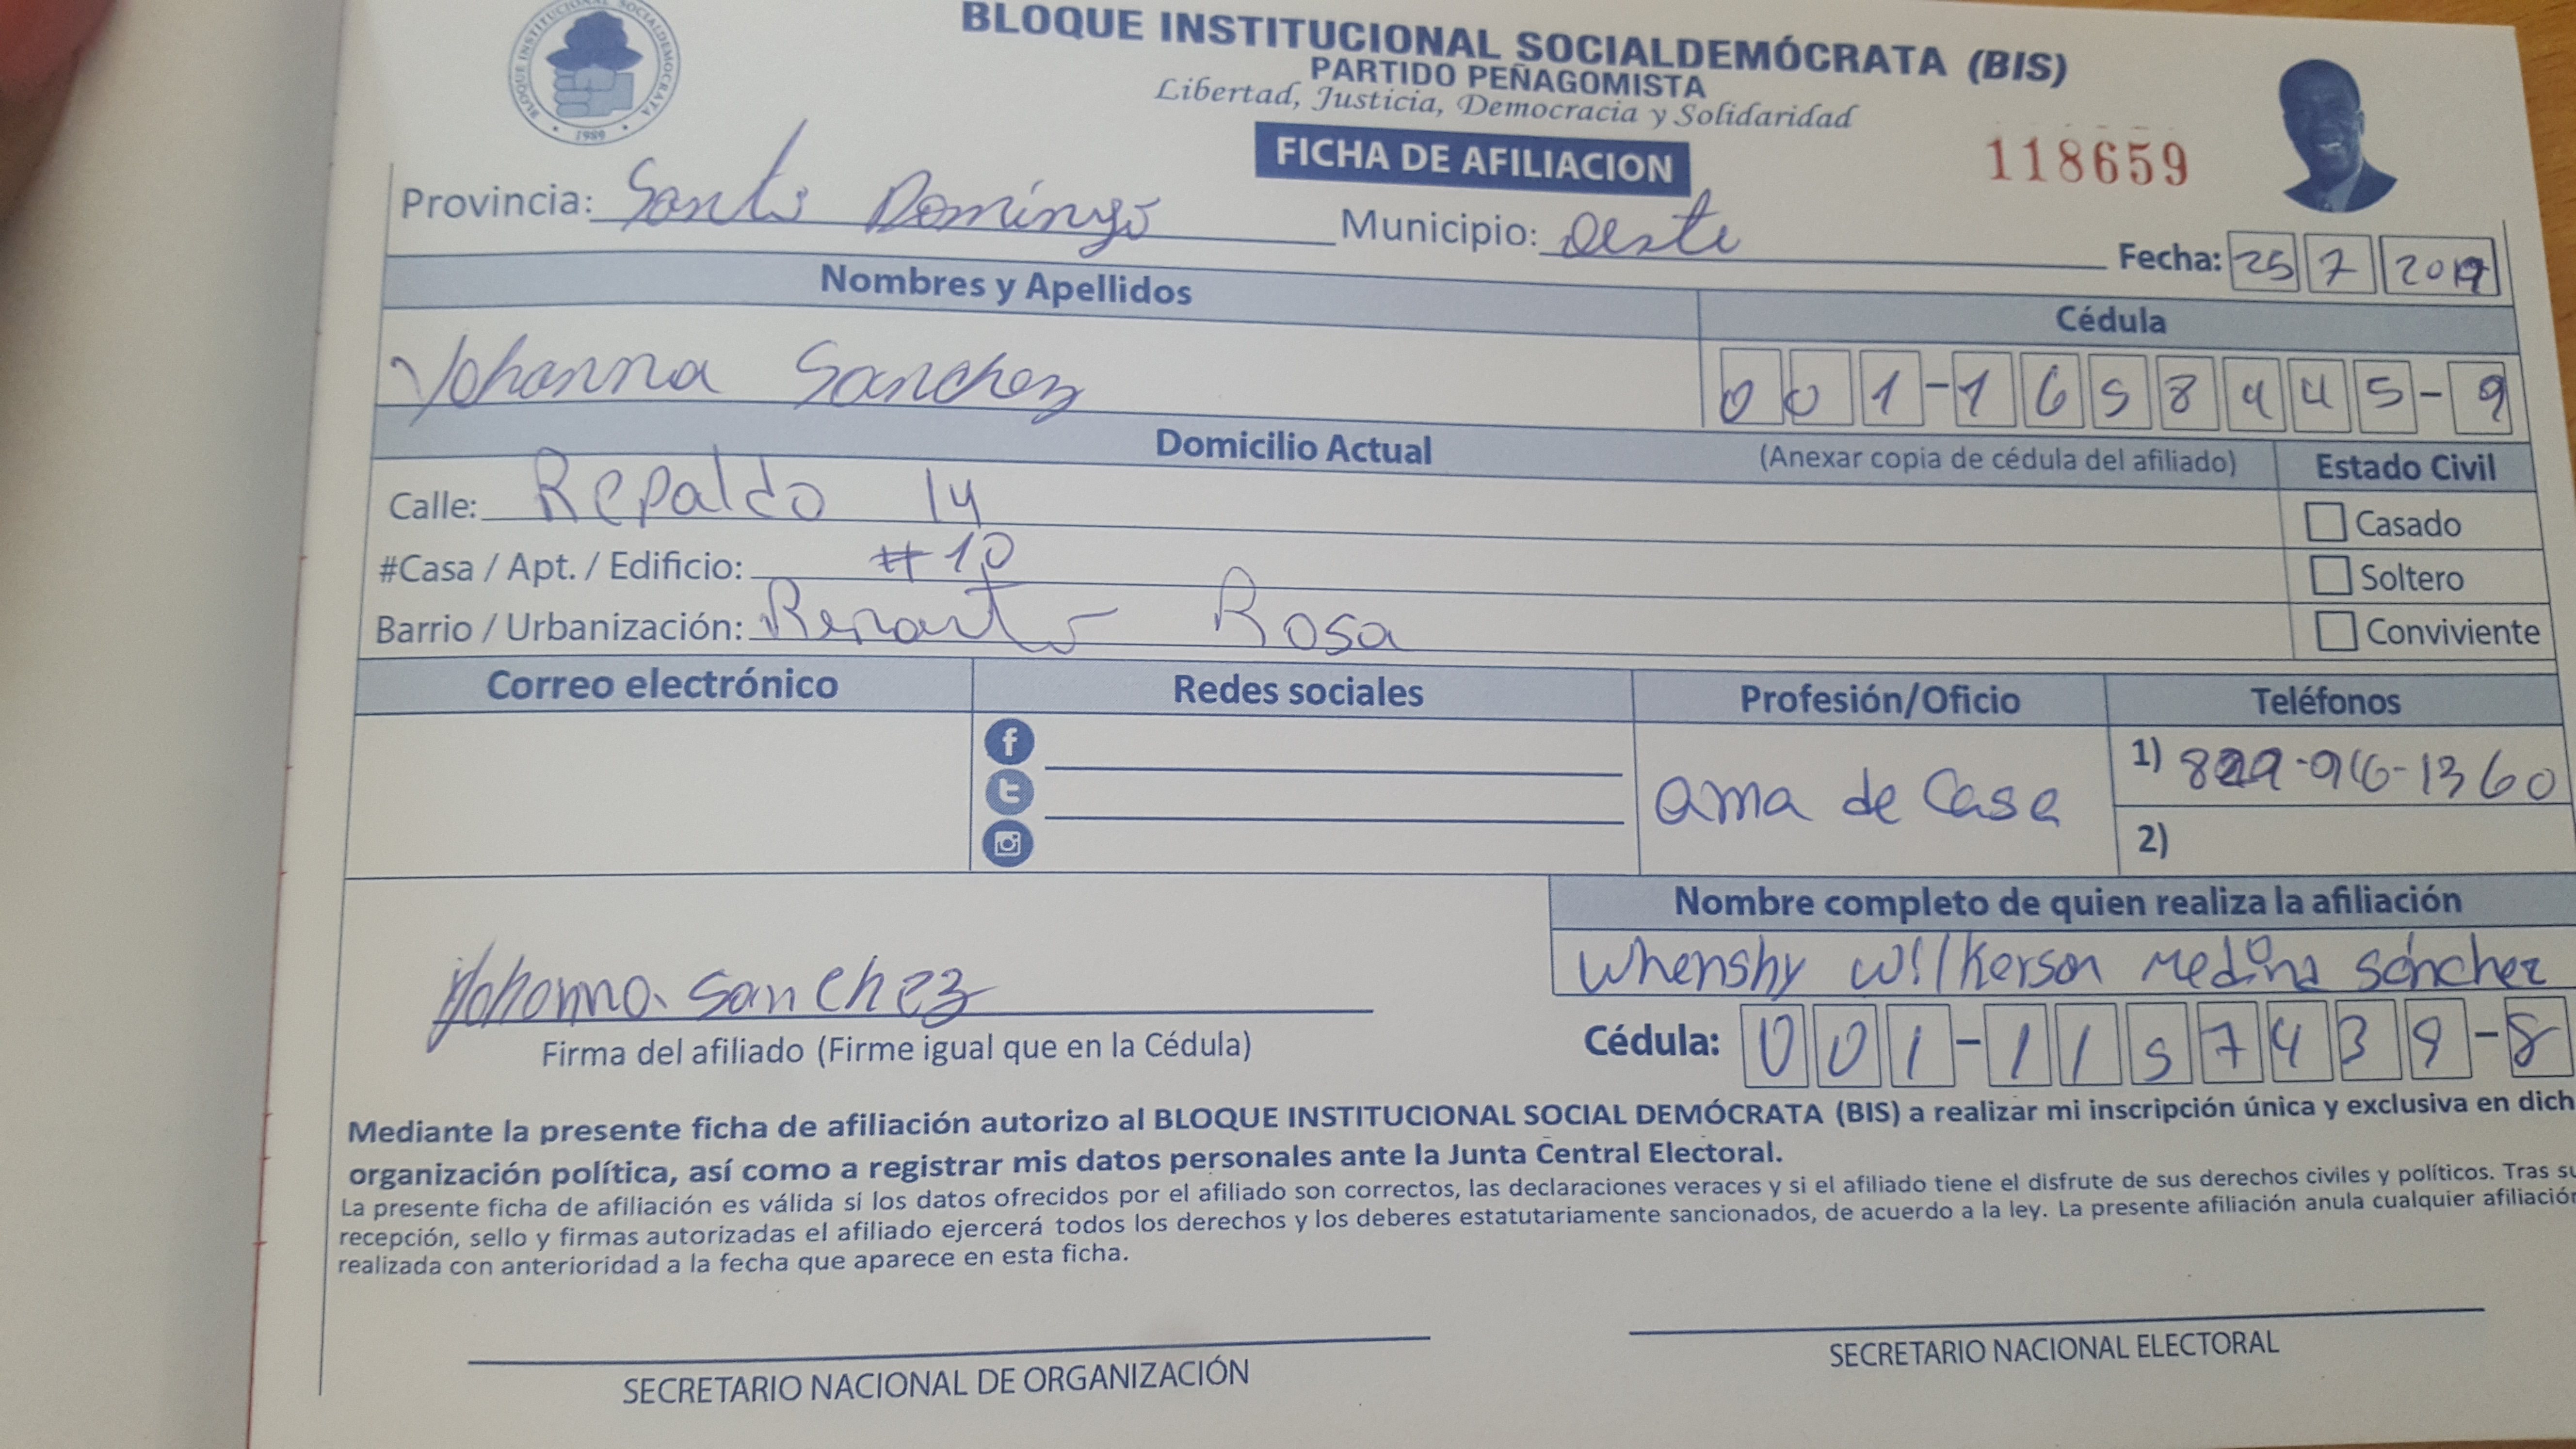 BLOQUE INSTITUCIONAL SOCIALDEMOCRATA
1989
BLOQUE INSTITUCIONAL SOCIALDEMÓCRATA (BIS)
PARTIDO PEÑAGOMISTA
Libertad, Justicia, Democracia y Solidaridad
FICHA DE AFILIACION
118659
Provincia: Santo Domingo Municipio: Oeste Fecha: 25 7 2017
Nombres y Apellidos Cédula
Yohanna Sanchez 001-1658445-9
Domicilio Actual (Anexar copia de cédula del afiliado) Estado Civil
Calle: Repaldo 14 Casado
#Casa / Apt. / Edificio: #10 Soltero
Barrio / Urbanización: Rosa Conviviente
Correo electrónico Redes sociales Profesión/Oficio Teléfonos
ama de Casa 1) 829-916-1360
2)
Nombre completo de quien realiza la afiliación
Whenshy Wilkerson Medina Sánchez
Yohanna Sanchez
Firma del afiliado (Firme igual que en la Cédula) Cédula: 001-1157439-8
Mediante la presente ficha de afiliación autorizo al BLOQUE INSTITUCIONAL SOCIAL DEMÓCRATA (BIS) a realizar mi inscripción única y exclusiva en dich
organización política, así como a registrar mis datos personales ante la Junta Central Electoral.
La presente ficha de afiliación es válida si los datos ofrecidos por el afiliado son correctos, las declaraciones veraces y si el afiliado tiene el disfrute de sus derechos civiles y políticos. Tras su
recepción, sello y firmas autorizadas el afiliado ejercerá todos los derechos y los deberes estatutariamente sancionados, de acuerdo a la ley. La presente afiliación anula cualquier afiliación
realizada con anterioridad a la fecha que aparece en esta ficha.
SECRETARIO NACIONAL DE ORGANIZACIÓN SECRETARIO NACIONAL ELECTORAL